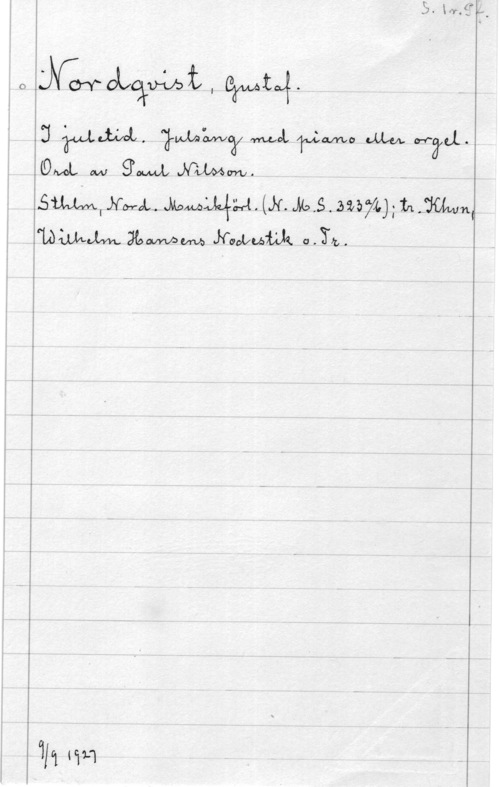 S. 1 r. Sf.
Nordqvist, Gustaf.
I juletid. Julsång med piano eller orgel.
Ord av Paul Nilsson.
Sthlm, Nord. Musikförl. (N. M. S. 3235/6); tr. Khvn,
Wilhelm Hansens Nodestik o. Tr.
9/9 1927